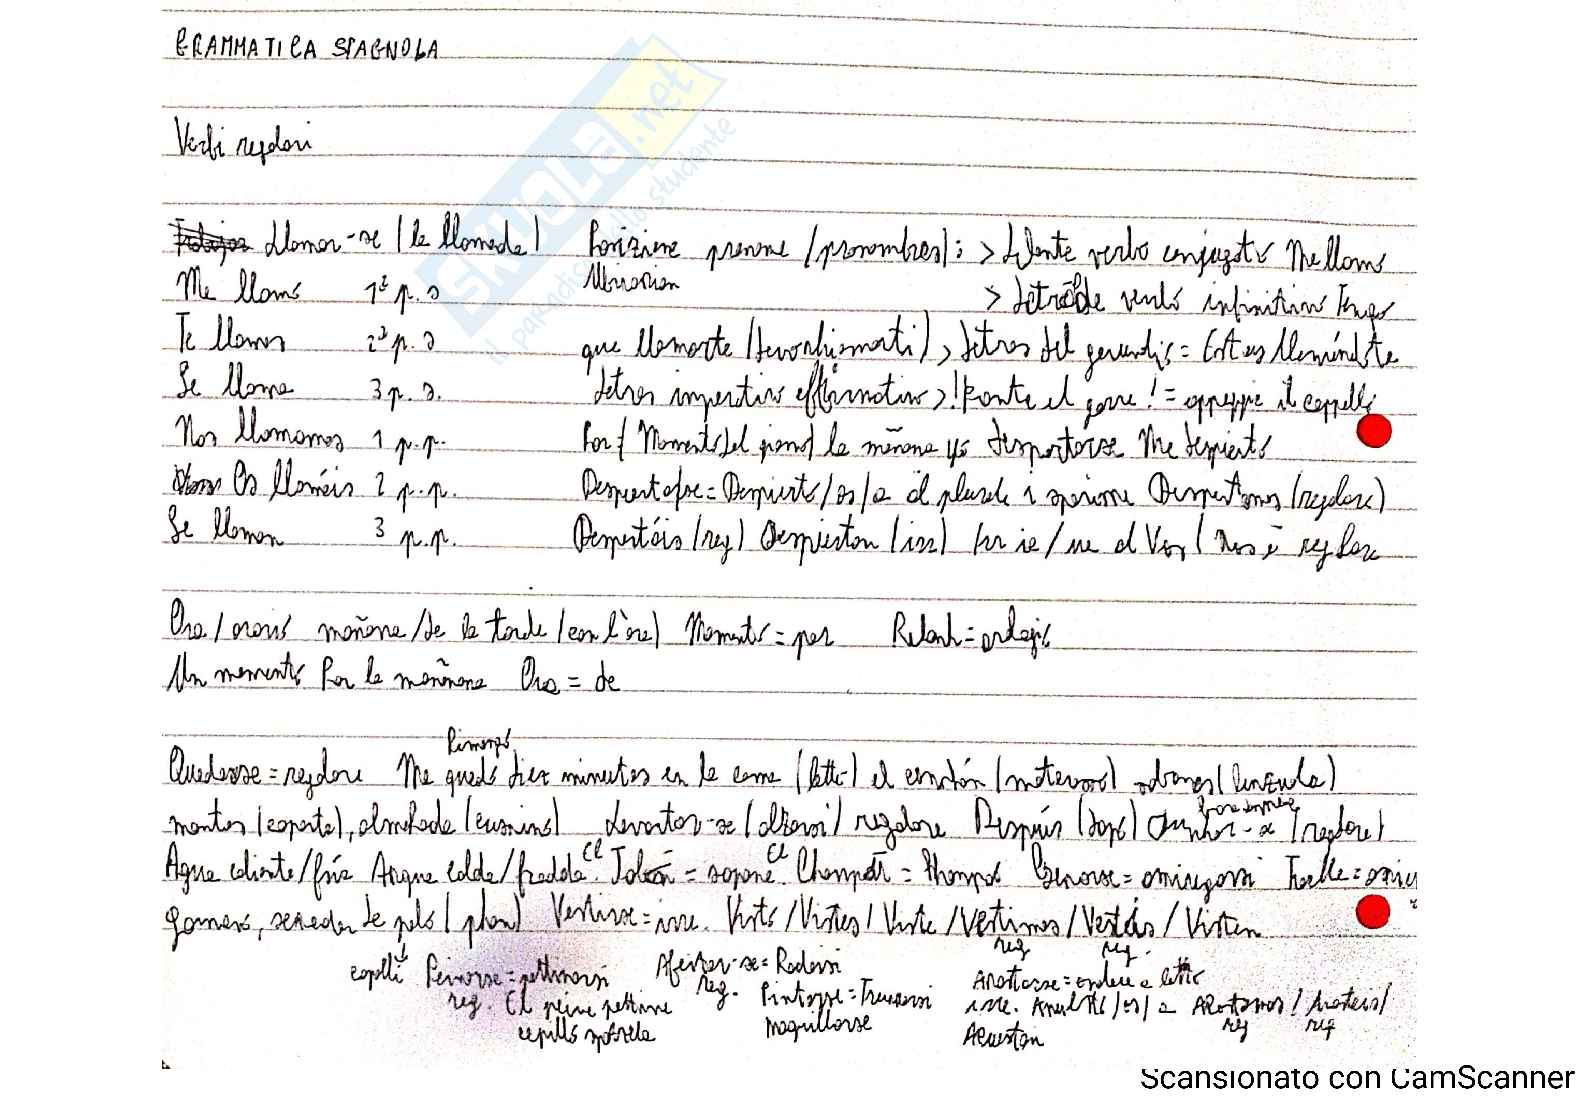 GRAMMATICA SPAGNOLA
Verbi regolari
Llamar-se (la llamada)
Posizione pronome (pronombres): > Delante verbo conjugato Me llamo
Me llamo 1ª p. s
> detrás de verbo infinitivo Tengo
Te llamas 2ª p. s
que llamarte (devo chiamarti) > detras del gerundio = Estas llamándote
Se llama 3 p. s.
detras imperativo affirmativo > ! Ponte el gorro ! = appoggia il cappello
Nos llamamos 1 p.p.
Por { Momento del giorno la mañana yo despertarse Me despierto
Os llamáis 2 p.p.
Despertarse = Despierto/as/a al plurale Despertamos (regolare)
Se llaman 3 p.p.
Despertáis (reg) Despiertan (irr)
Ora/ mañana/de la tarde (con l'ora) Momento = por Reloh = orologio
Un momento Por la mañana Ora = de
Rimango
Quedarse = regolare Me quedo diez minutos en la cama (letto) el colchón (materasso) (lenzuola)
mantas (coperte), almohada (cuscino) Levantar-se (alzarsi) regolare Después (dopo) Duchar-se (regolare)
Agua caliente/fría Acqua calda/fredda. El Jabón = sapone. El Champú = Shampoo
secador de pelo (phon) Vestirse = irre. Visto/Vistes/Viste/Vestimos/Vestís/Visten
reg reg.
capelli Peinarse = pettinarsi
reg. El peine pettine
cepillo spazzola
Afeitar-se = Radersi
reg. Pintarse = Truccarsi
Maquillarse
Acostarse = andare a letto
irre. Acuesto/as/a Acostamos/Acostáis/
reg reg
Acuestan
SKUOLA.net
il paradiso dello studente
Scansionato con CamScanner